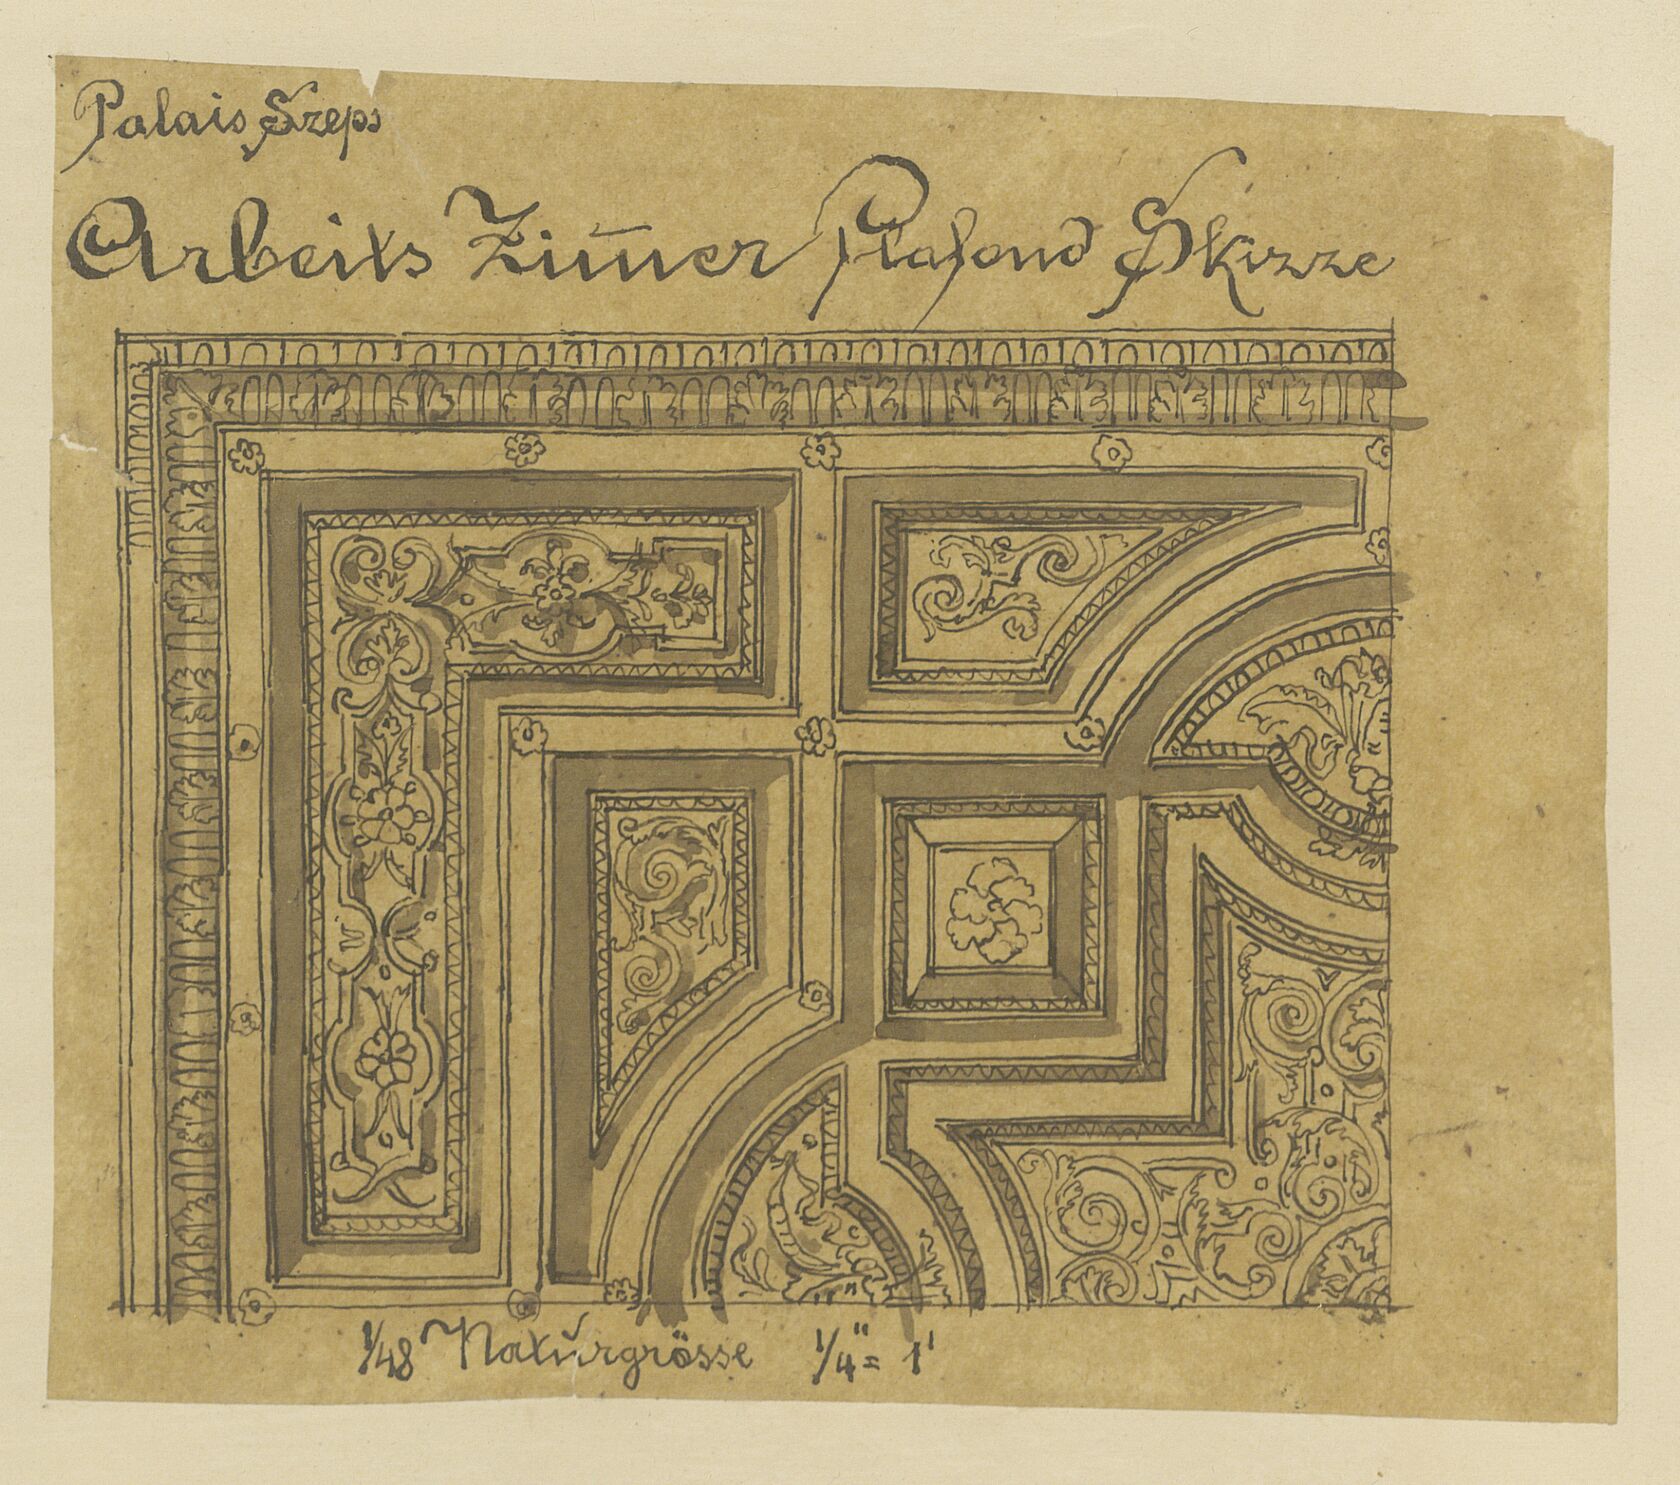 Palais Szeps
Arbeits Zim̅er Plafond Skizze
1/48 Naturgrösse 1/4" = 1'